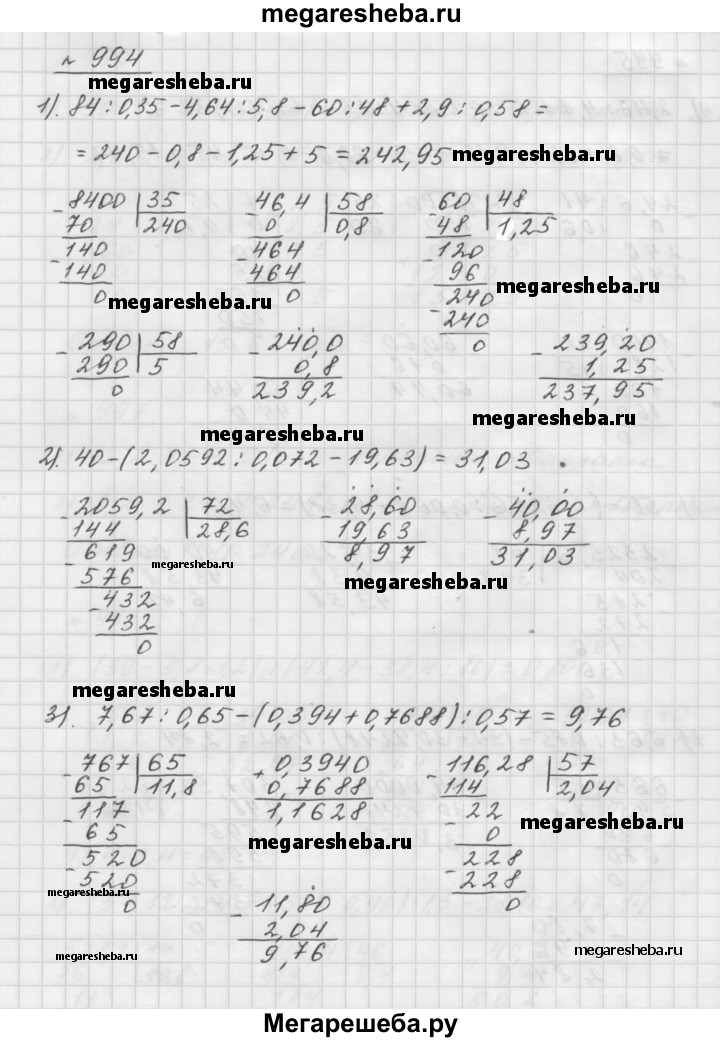 megaresheba.ru
№ 994
megaresheba.ru
1). 84 : 0,35 - 4,64 : 5,8 - 60 : 48 + 2,9 : 0,58 =
= 240 - 0,8 - 1,25 + 5 = 242,95 megaresheba.ru
- 8400 | 35 - 46,4 | 58 - 60 | 48
70 240 0 0,8 48 1,25
- 140 - 464 - 120
140 464 96
0 0 - 240
megaresheba.ru megaresheba.ru
240
0
- 290 | 58 - 240,0 - 239,20
290 5 0,8 1,25
0 239,2 237,95
megaresheba.ru megaresheba.ru
2). 40 - (2,0592 : 0,072 - 19,63) = 31,03 .
- 2059,2 | 72 - 28,60 - 40,00
144 28,6 19,63 8,97
- 619 8,97 31,03
megaresheba.ru megaresheba.ru
576
- 432
432
0
megaresheba.ru
3). 7,67 : 0,65 - (0,394 + 0,7688) : 0,57 = 9,76
- 767 | 65 + 0,3940 - 116,28 | 57
65 11,8 0,7688 114 2,04
- 117 1,1628 22
megaresheba.ru megaresheba.ru
65 - 0
- 520 228
520 - 228
0 0
megaresheba.ru
- 11,80
2,04
9,76
megaresheba.ru megaresheba.ru
Мегарешеба.ру